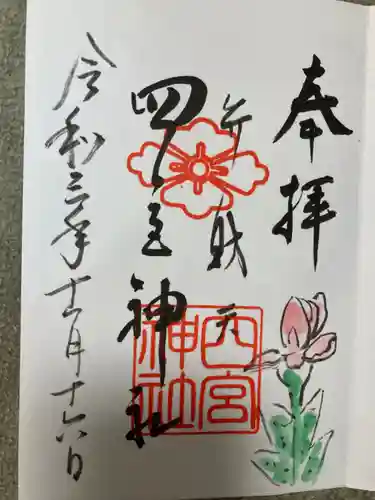 奉拝
弁財天
四宮神社
四宮神社
令和三年十二月十六日